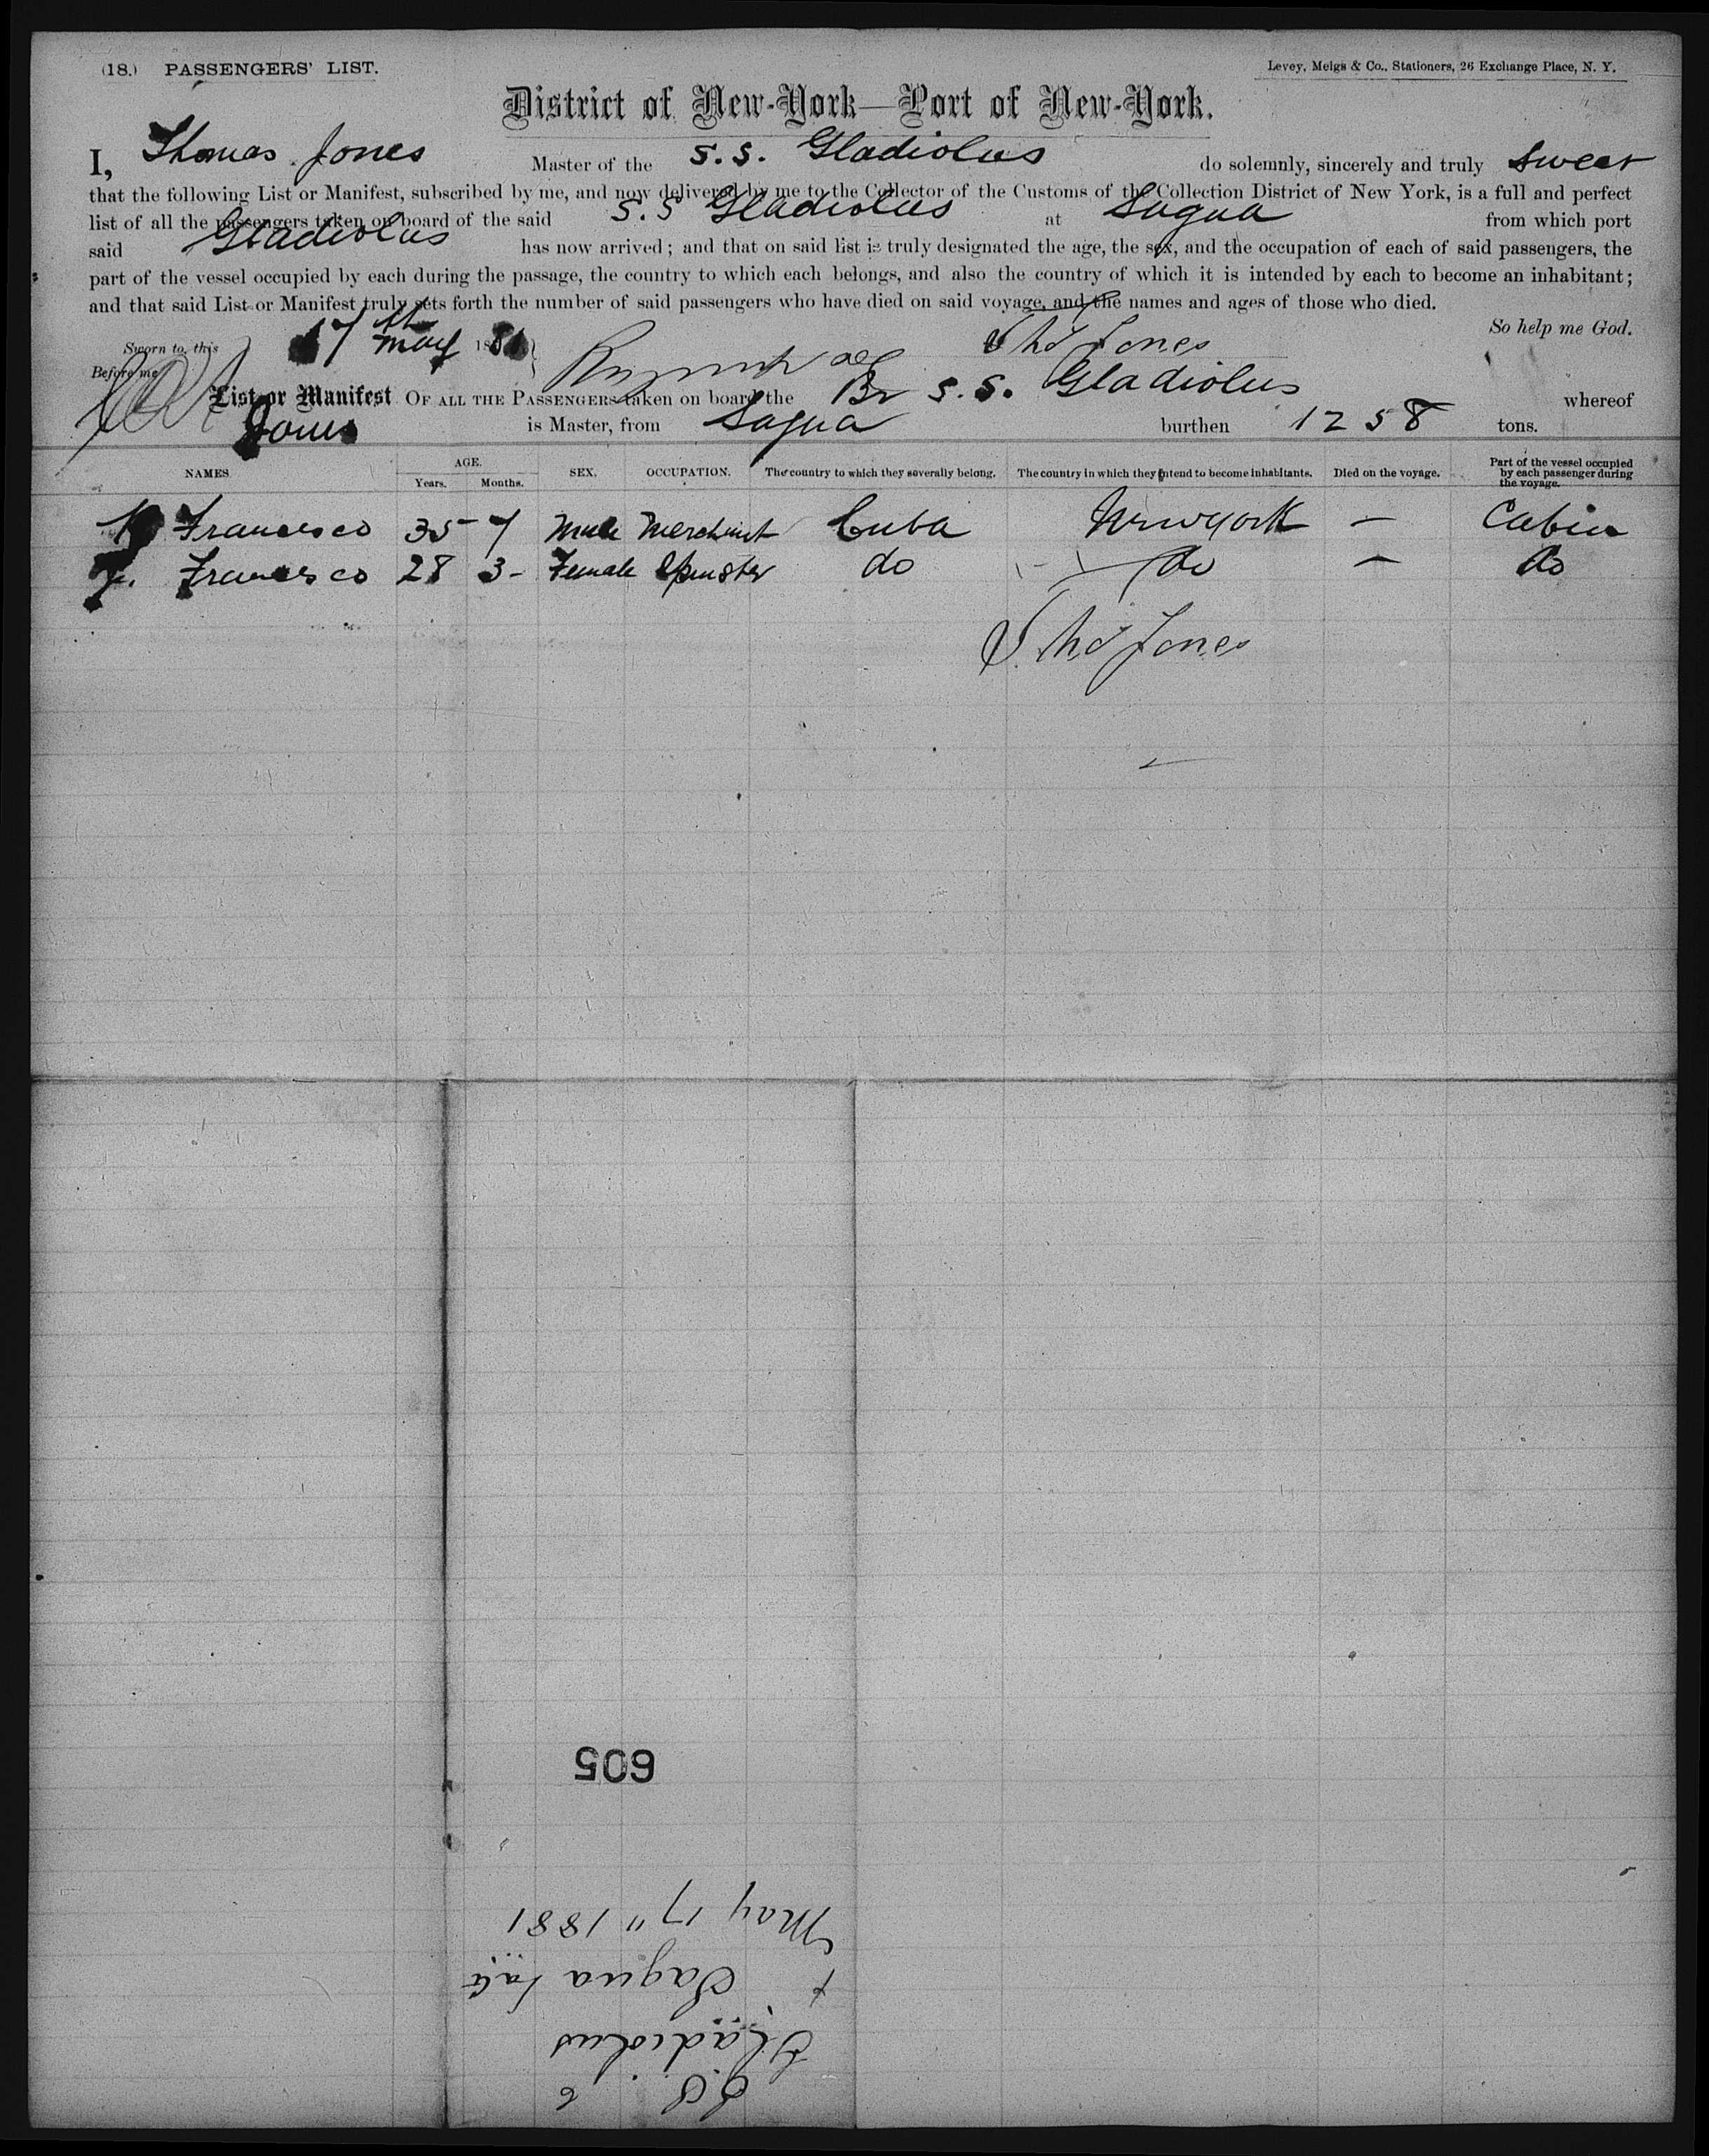 (18.) PASSENGERS' LIST.
Levey, Meigs & Co., Stationers, 26 Exchange Place, N. Y.
District of New-York—Port of New-York.
I, Thomas Jones Master of the S.S. Gladiolus do solemnly, sincerely and truly swear
that the following List or Manifest, subscribed by me, and now delivered by me to the Collector of the Customs of the Collection District of New York, is a full and perfect
list of all the passengers taken on board of the said S.S Gladiolus at Sagua from which port
said Gladiolus has now arrived; and that on said list is truly designated the age, the sex, and the occupation of each of said passengers, the
part of the vessel occupied by each during the passage, the country to which each belongs, and also the country of which it is intended by each to become an inhabitant;
and that said List or Manifest truly sets forth the number of said passengers who have died on said voyage, and the names and ages of those who died.
So help me God.
Sworn to, this 17th May 1881 Thos Jones
Before me
List or Manifest OF ALL THE PASSENGERS taken on board the Br S.S. Gladiolus whereof
Jones is Master, from Sagua burthen 1258 tons.
NAMES AGE. Years. Months. SEX. OCCUPATION. The country to which they severally belong. The country in which they intend to become inhabitants. Died on the voyage. Part of the vessel occupied by each passenger during the voyage.
Francisco 35 7 Male Merchant Cuba New york — Cabin
Francisco 28 3 - Female Spinster do do — do
Thos Jones
605
S.S.
Gladiolus
Sagua
May 17" 1881